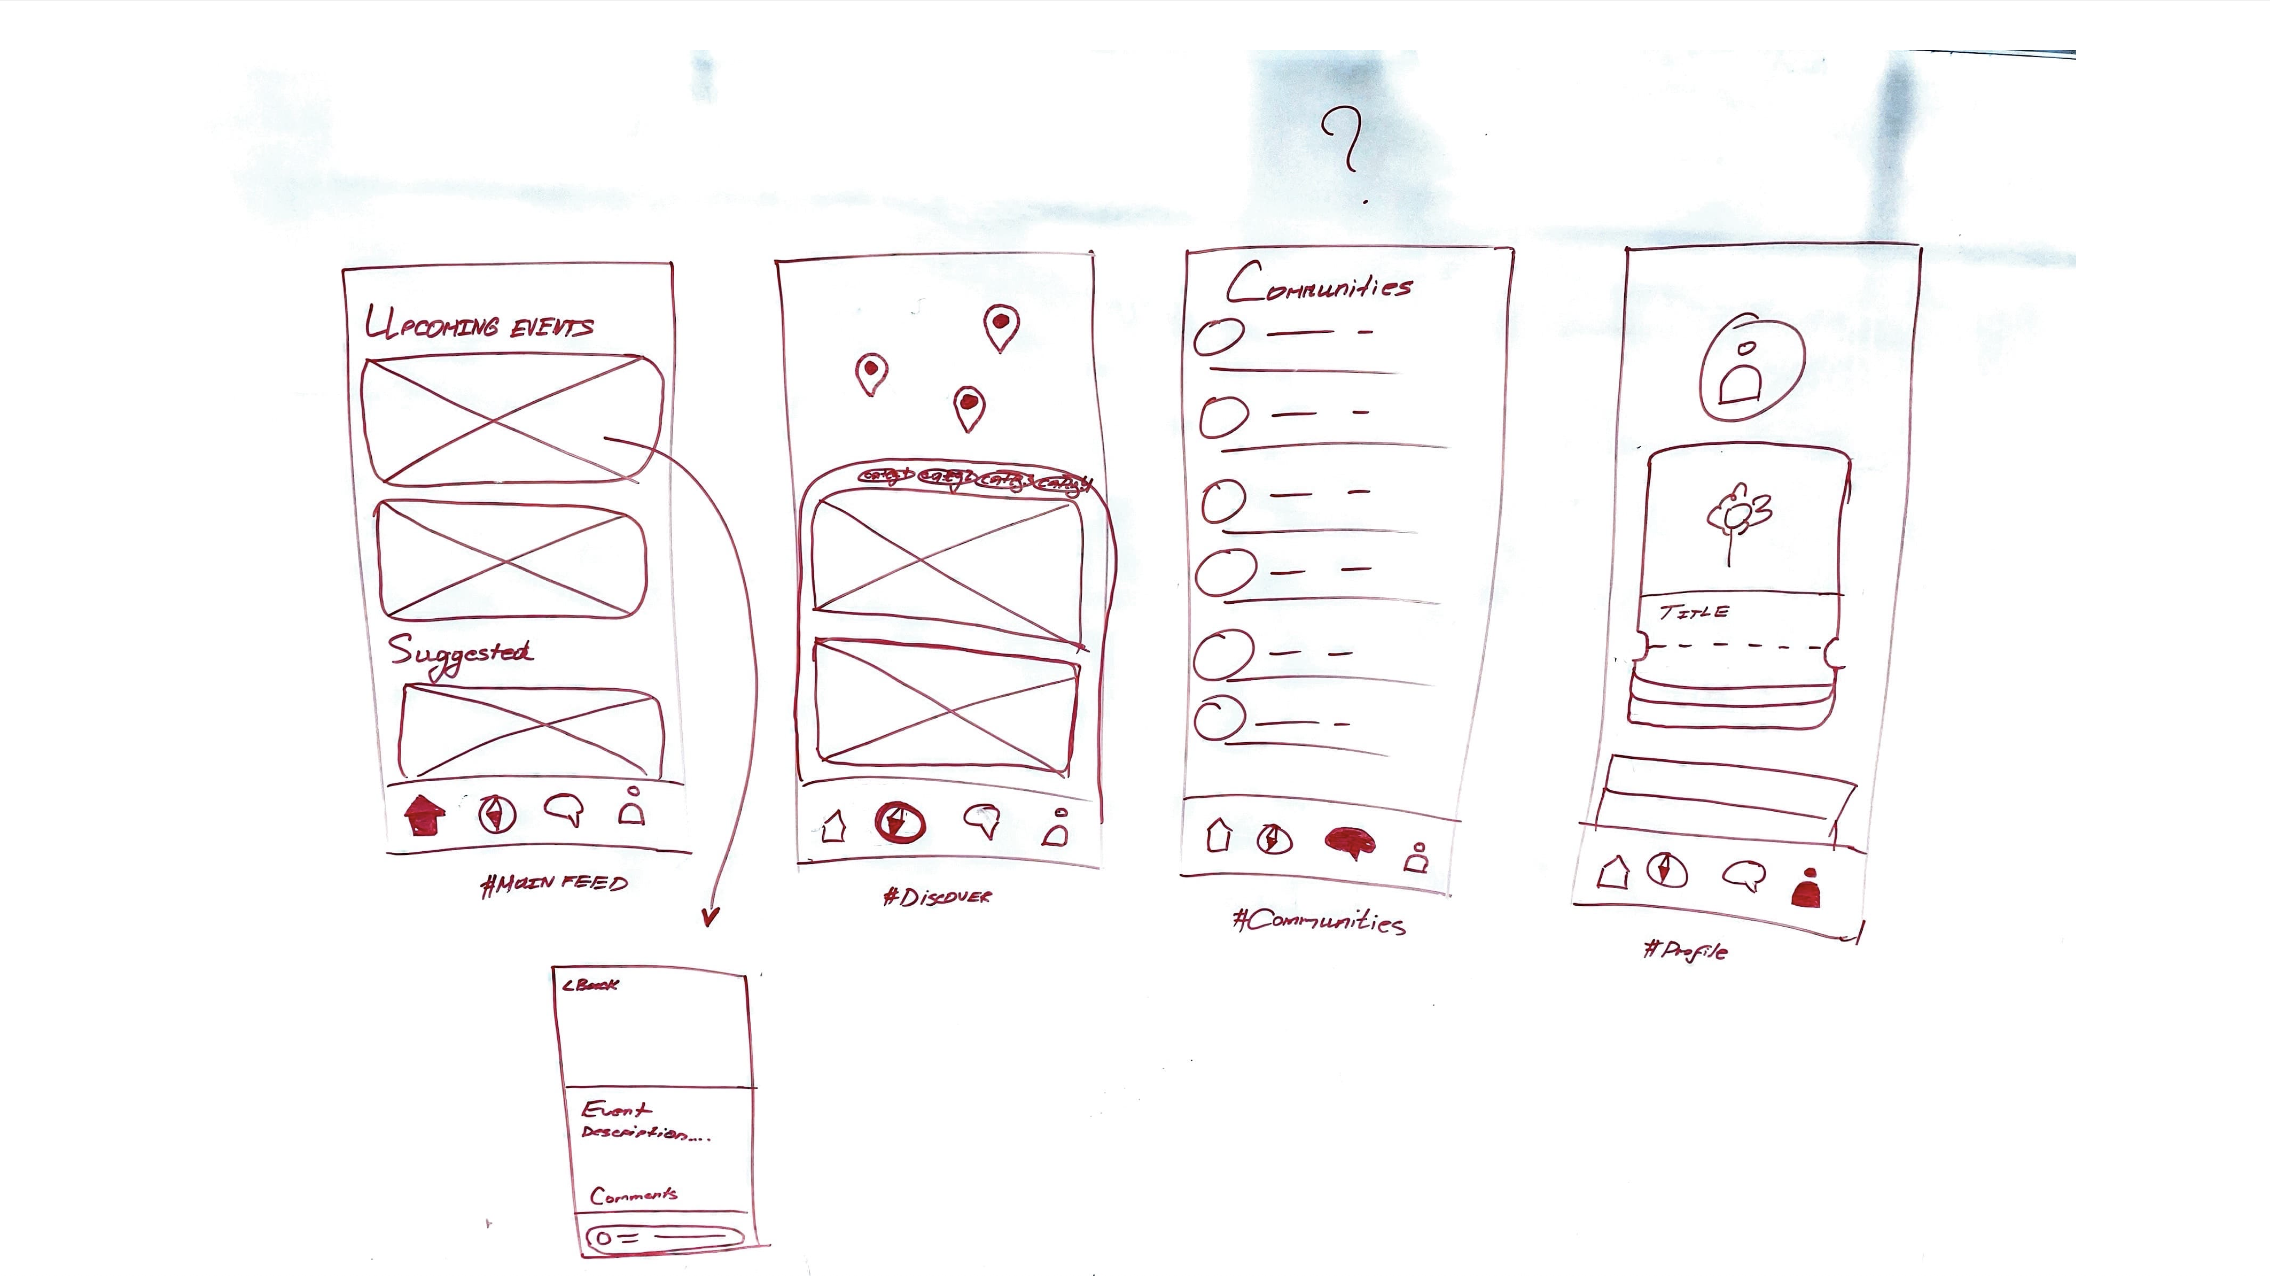 ?
UPCOMING EVENTS
Suggested
#MAIN FEED
categ1 categ2 categ3 categ4
#DISCOVER
Communities
#Communities
TITLE
#Profile
< Back
Event
Description....
Comments